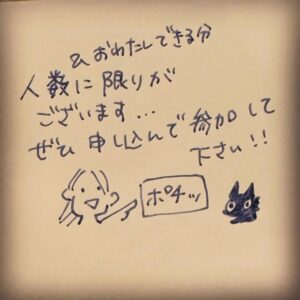 & おわたしできる分
人数に限りが
ございます...
ぜひ 申し込んで 参加して
下さい!!
ポチッ